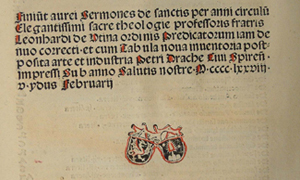 Finiũt aurei Sermones de sanctis per anni circulũ
Elegantissimi sacre theologie professoris fratris
Leonhardi de Utino ordinis Predicatorum iam de
nuo correcti · et cum Tabula noua inuentoria post-
posita arte et industria Petri Drache Ciui Spireñ ·
impressi Sub anno Salutis nostre · M · cccc · lxxviij ·
v · ydus Februarij